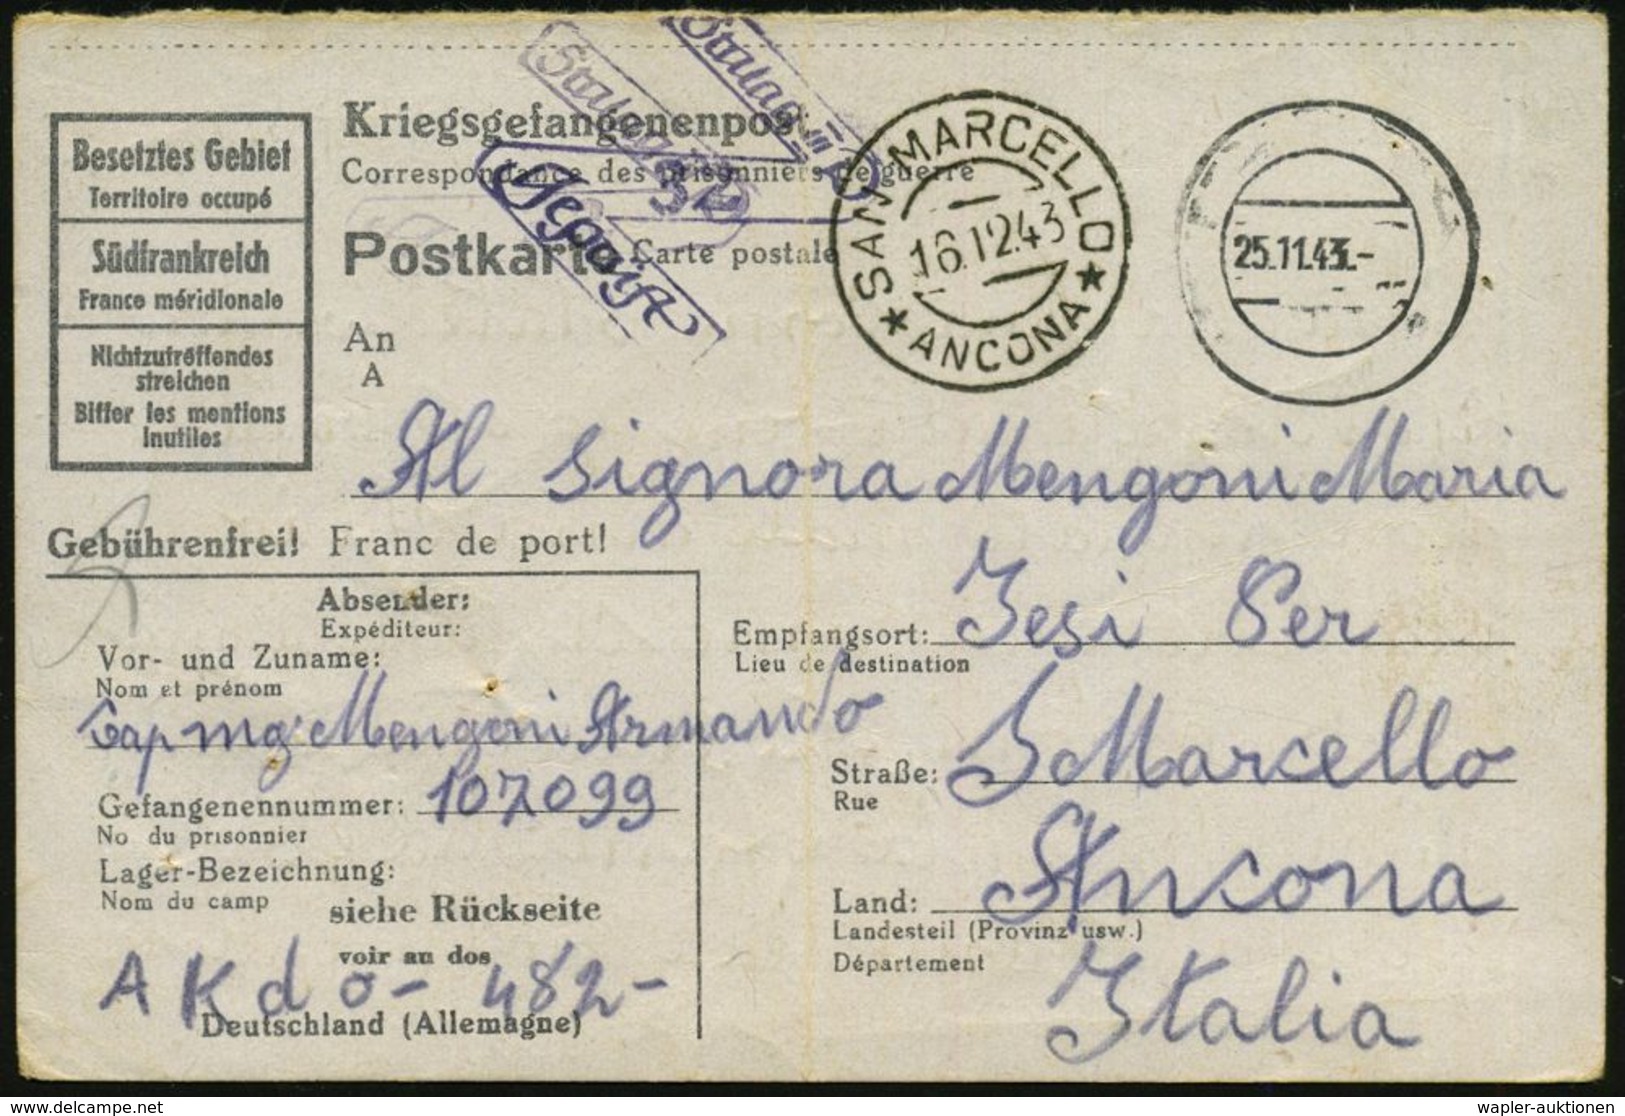 Besetztes Gebiet
Territoire occupé
Südfrankreich
France méridionale
Nichtzutreffendes
streichen
Biffer les mentions
inutiles
Kriegsgefangenenpost
Correspondance des prisonniers de guerre
Postkarte Carte postale
Stalag
Stalag
SAN MARCELLO
16.12.43
★ ANCONA ★
25.11.43.-
An
A
Al Signora Mengoni Maria
Gebührenfrei! Franc de port!
Absender:
Expéditeur:
Vor- und Zuname:
Nom et prénom
Cap mg Mengoni Armando
Gefangenennummer: 107099
No du prisonnier
Lager-Bezeichnung:
Nom du camp
siehe Rückseite
voir au dos
A Kdo- 482-
Deutschland (Allemagne)
Empfangsort: Jesi Per
Lieu de destination
Straße: S Marcello
Rue
Land: Ancona
Landesteil (Provinz usw.)
Département
Italia
© www.delcampe.net
wapler-auktionen